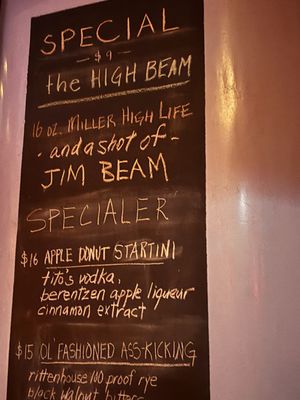 SPECIAL
- $9 -
the HIGH BEAM
16 oz. MILLER HIGH LIFE
- and a shot of -
JIM BEAM
SPECIALER
$16 APPLE DONUT STARTINI
tito's vodka,
berentzen apple liqueur
cinnamon extract
$15 OL FASHIONED ASS-KICKING
rittenhouse 100 proof rye
black walnut bitters